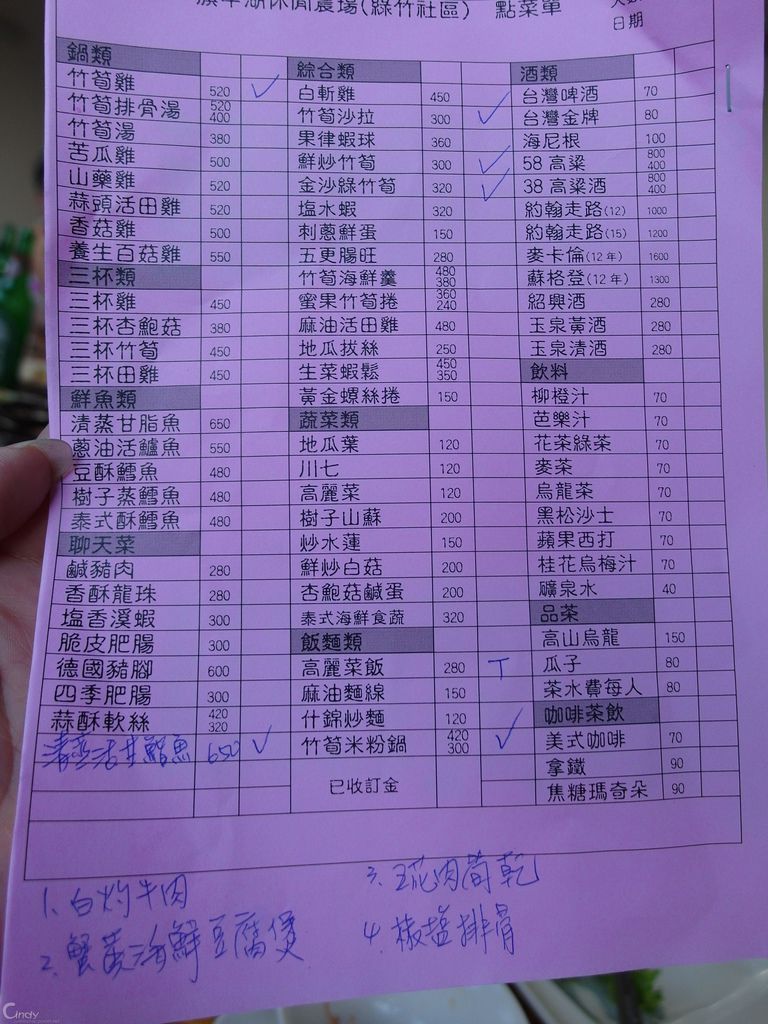 休閒農場(綠竹社區) 點菜單
日期
鍋類
竹筍雞 520 ✓
竹筍排骨湯 520 400
竹筍湯 380
苦瓜雞 500
山藥雞 520
蒜頭活田雞 520
香菇雞 500
養生百菇雞 550
三杯類
三杯雞 450
三杯杏鮑菇 380
三杯竹筍 450
三杯田雞 450
鮮魚類
清蒸甘脂魚 650
蔥油活鱸魚 550
豆酥鱈魚 480
樹子蒸鱈魚 480
泰式酥鱈魚 480
聊天菜
鹹豬肉 280
香酥龍珠 280
塩香溪蝦 300
脆皮肥腸 300
德國豬腳 600
四季肥腸 300
蒜酥軟絲 420 320
650 ✓
綜合類
白斬雞 450
竹筍沙拉 300 ✓
果律蝦球 360
鮮炒竹筍 300 ✓
金沙綠竹筍 320 ✓
塩水蝦 320
刺蔥鮮蛋 150
五更腸旺 280
竹筍海鮮羹 480 380
蜜果竹筍捲 360 240
麻油活田雞 480
地瓜拔絲 250
生菜蝦鬆 450 350
黃金螺絲捲 150
蔬菜類
地瓜葉 120
川七 120
高麗菜 120
樹子山蘇 200
炒水蓮 150
鮮炒白菇 200
杏鮑菇鹹蛋 200
泰式海鮮食蔬 320
飯麵類
高麗菜飯 280 T
麻油麵線 150
什錦炒麵 120
竹筍米粉鍋 420 300 ✓
已收訂金
酒類
台灣啤酒 70
台灣金牌 80
海尼根 100
58 高粱 800 400
38 高粱酒 800 400
約翰走路(12) 1000
約翰走路(15) 1200
麥卡倫(12 年) 1600
蘇格登(12 年) 1300
紹興酒 280
玉泉黃酒 280
玉泉清酒 280
飲料
柳橙汁 70
芭樂汁 70
花茶綠茶 70
麥茶 70
烏龍茶 70
黑松沙士 70
蘋果西打 70
桂花烏梅汁 70
礦泉水 40
品茶
高山烏龍 150
瓜子 80
茶水費每人 80
咖啡茶飲
美式咖啡 70
拿鐵 90
焦糖瑪奇朵 90
1、白灼牛肉
2、蟹黃海鮮豆腐煲
3、肉筍乾
4、椒塩排骨
Cindy